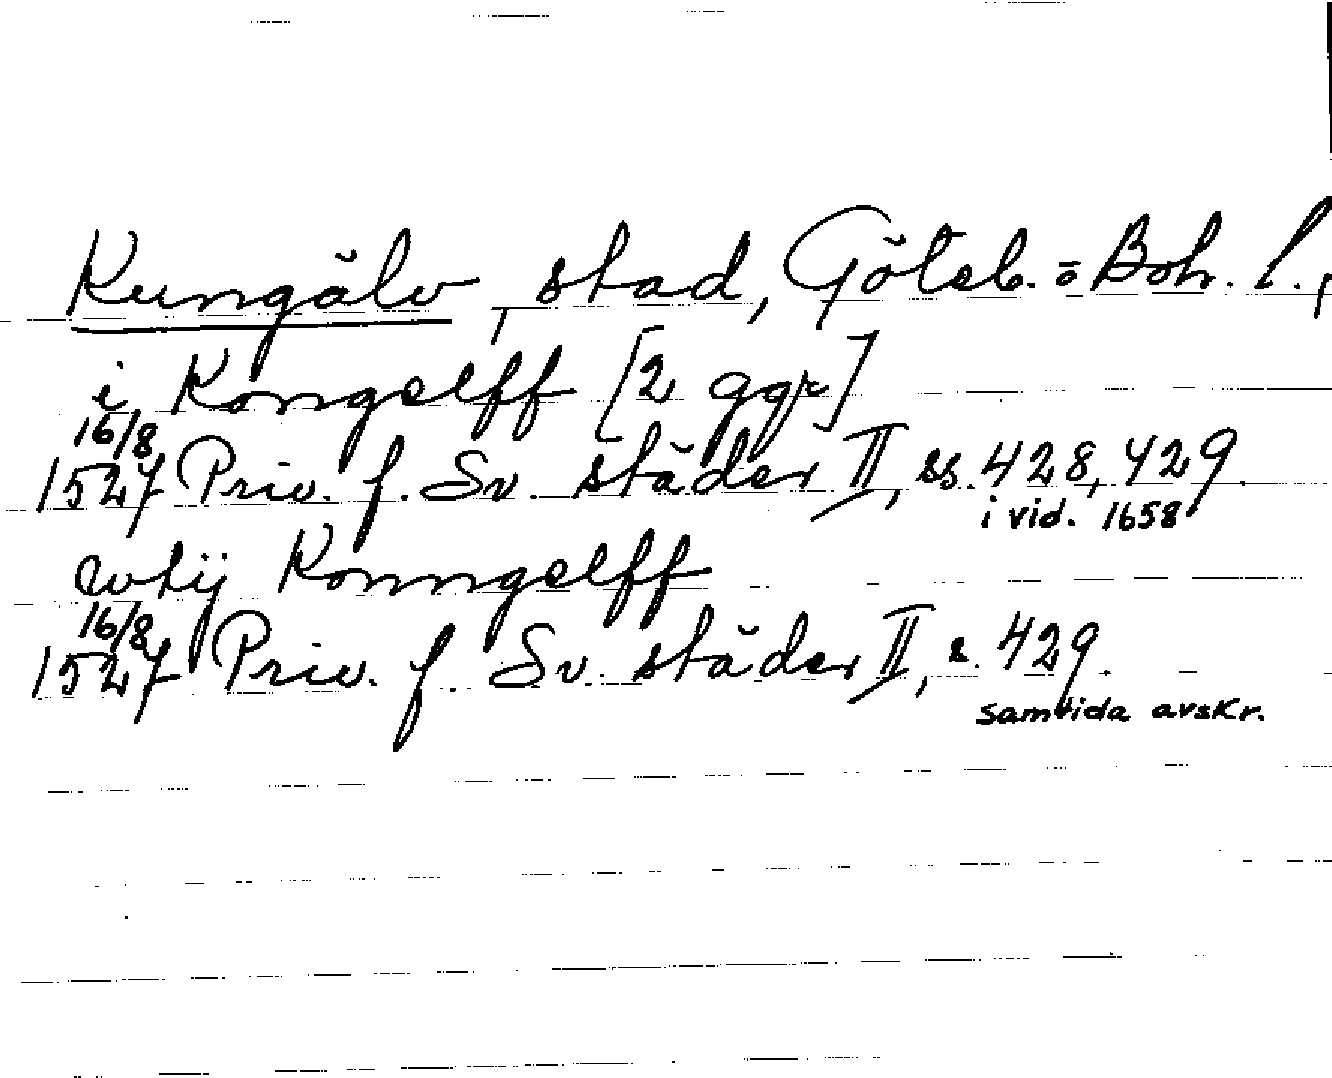 Kungälv, stad, Göteb. o Boh. l.,
i Kongelff [2 ggr]
16/8
1527 Priv. f. Sv. städer II, ss. 428, 429.
i vid. 1658
wtij Konngelff
16/8
1527 Priv. f. Sv. städer II, s. 429.
samtida avskr.